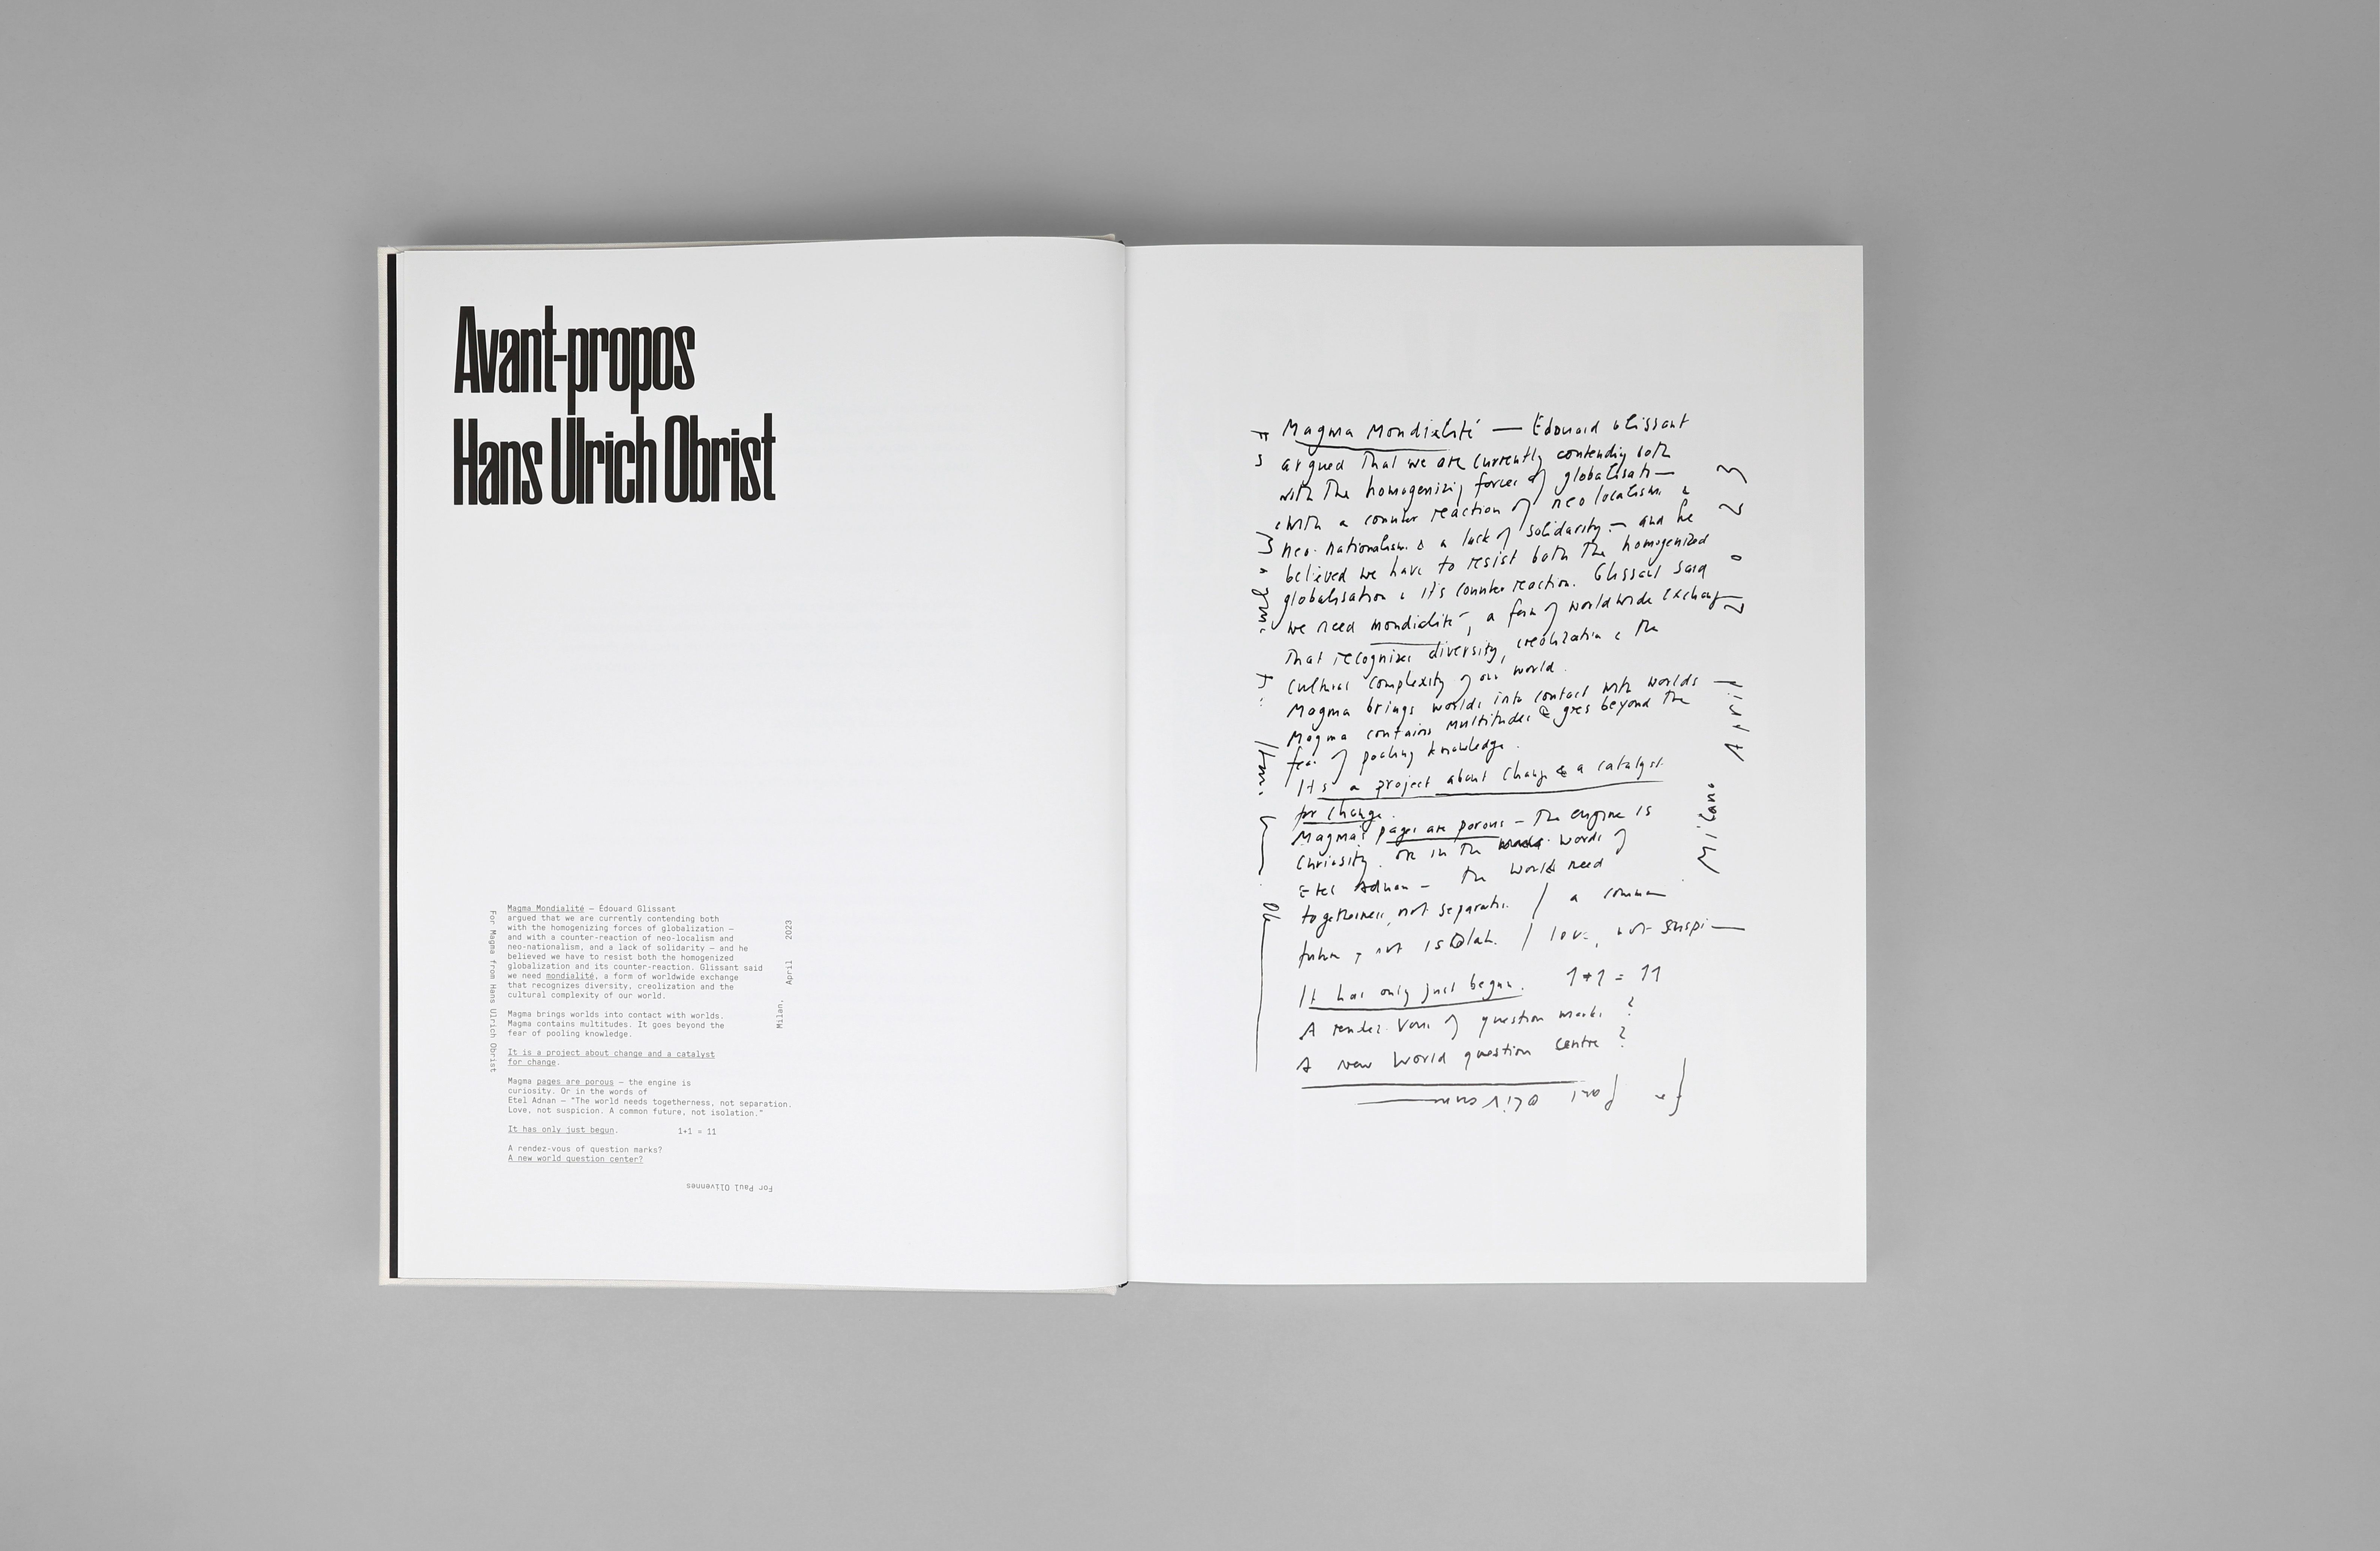 Avant-propos
Hans Ulrich Obrist
Magma Mondialité — Édouard Glissant
argued that we are currently contending both
with the homogenizing forces of globalization —
and with a counter-reaction of neo-localism and
neo-nationalism, and a lack of solidarity — and he
believed we have to resist both the homogenized
globalization and its counter-reaction. Glissant said
we need mondialité, a form of worldwide exchange
that recognizes diversity, creolization and the
cultural complexity of our world.
Magma brings worlds into contact with worlds.
Magma contains multitudes. It goes beyond the
fear of pooling knowledge.
It is a project about change and a catalyst
for change.
Magma pages are porous — the engine is
curiosity. Or in the words of
Etel Adnan — “The world needs togetherness, not separation.
Love, not suspicion. A common future, not isolation.”
It has only just begun. 1+1 = 11
A rendez-vous of question marks?
A new world question center?
For Paul Olivennes
For Magma from Hans Ulrich Obrist
Milan, April 2023
Magma Mondialité — Edouard Glissant
argued that we are currently contending both
with the homogenizing forces of globalisati—
& with a counter reaction of neo localism &
neo-nationalism & a lack of solidarity — and he
believed we have to resist both the homogenized
globalisation & it's counter reaction. Glissant said
we need mondialité, a form of worldwide exchange
that recognizes diversity, creolization & the
cultural complexity of our world.
Magma brings worlds into contact with worlds
Magma contains multitudes & goes beyond the
fear of pooling knowledge.
It's a project about change & a catalyst
for change.
Magma's pages are porous — the engine is
curiosity. or in the words of
Etel Adnan — the world need
togetherness, not separatio. / a common
future, not isolati. / love, not suspi—
It has only just begun. 1+1 = 11
A rendez-vous of question marks ?
A new world question centre ?
for Paul Olivennes
Milano April 2023